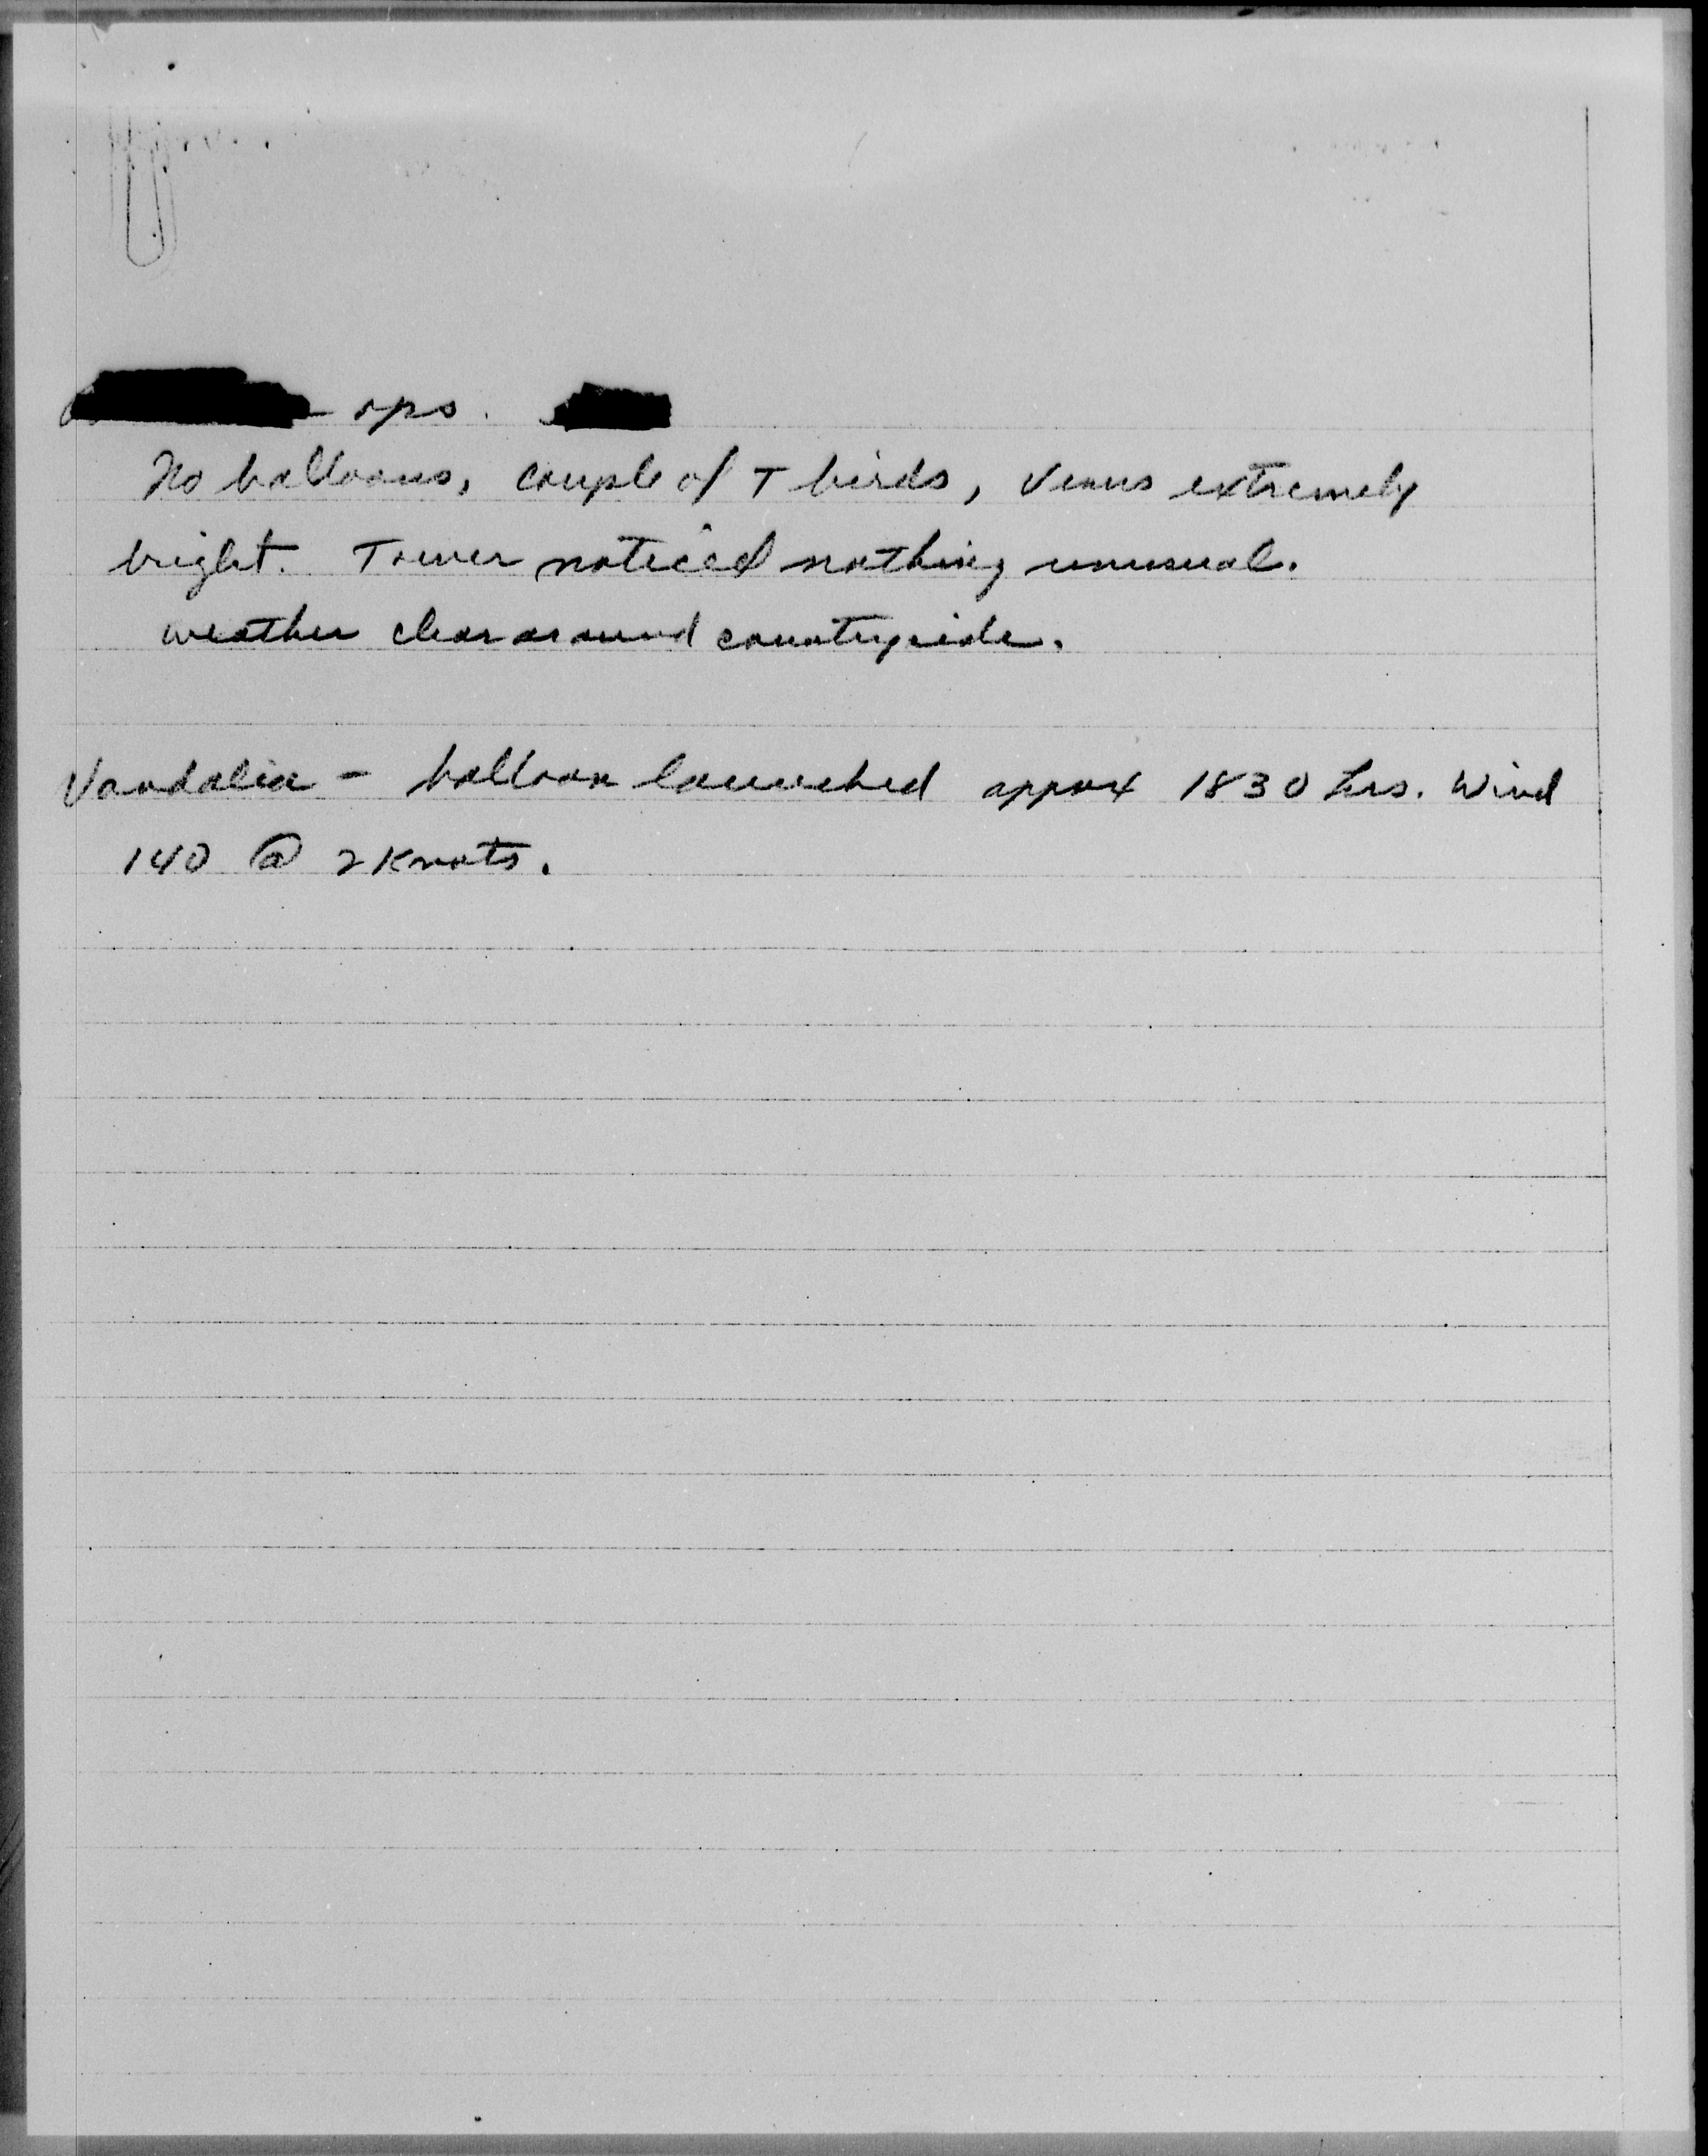 - ops.
No balloons, couple of T birds, Venus extremely
bright. Tower noticed nothing unusual.
weather clear around countryside.
Vandalia - balloon launched approx 1830 hrs. Wind
140 @ 2 Knots.